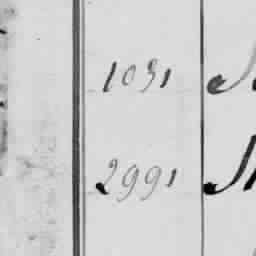 1031
2991